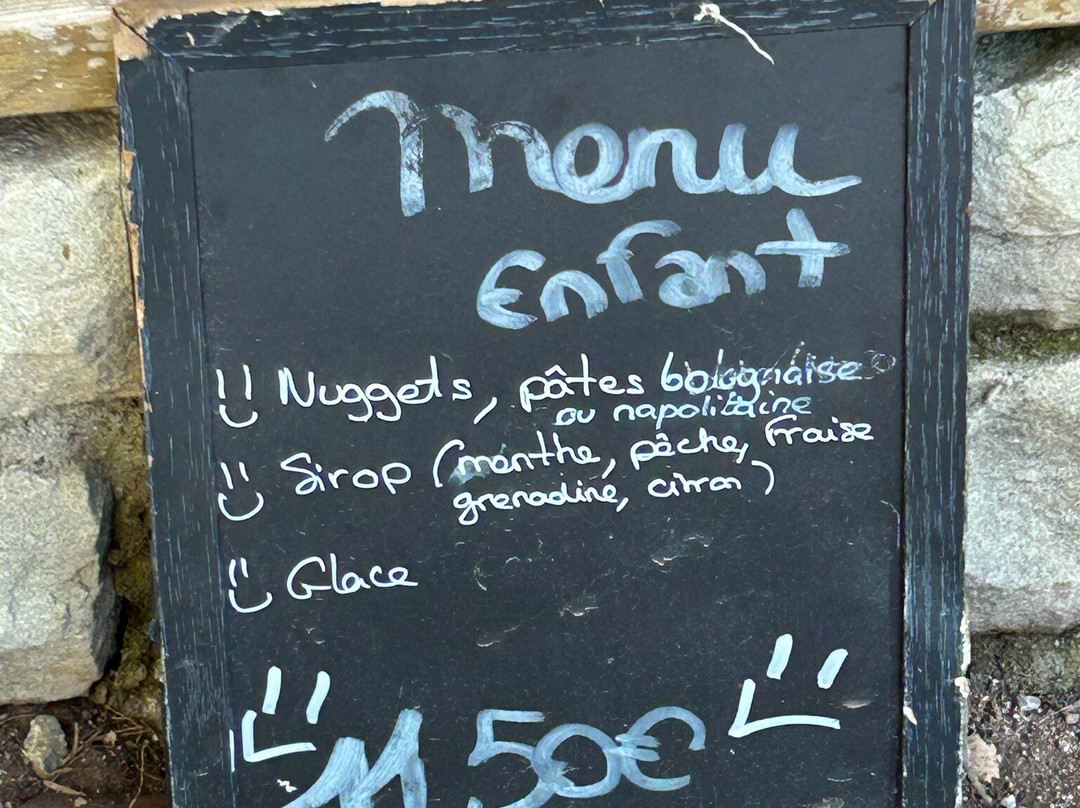 Menu
Enfant
Nuggets, pâtes bolognaise
ou napolitaine
Sirop (menthe, pêche, fraise
grenadine, citron)
Glace
11,50€